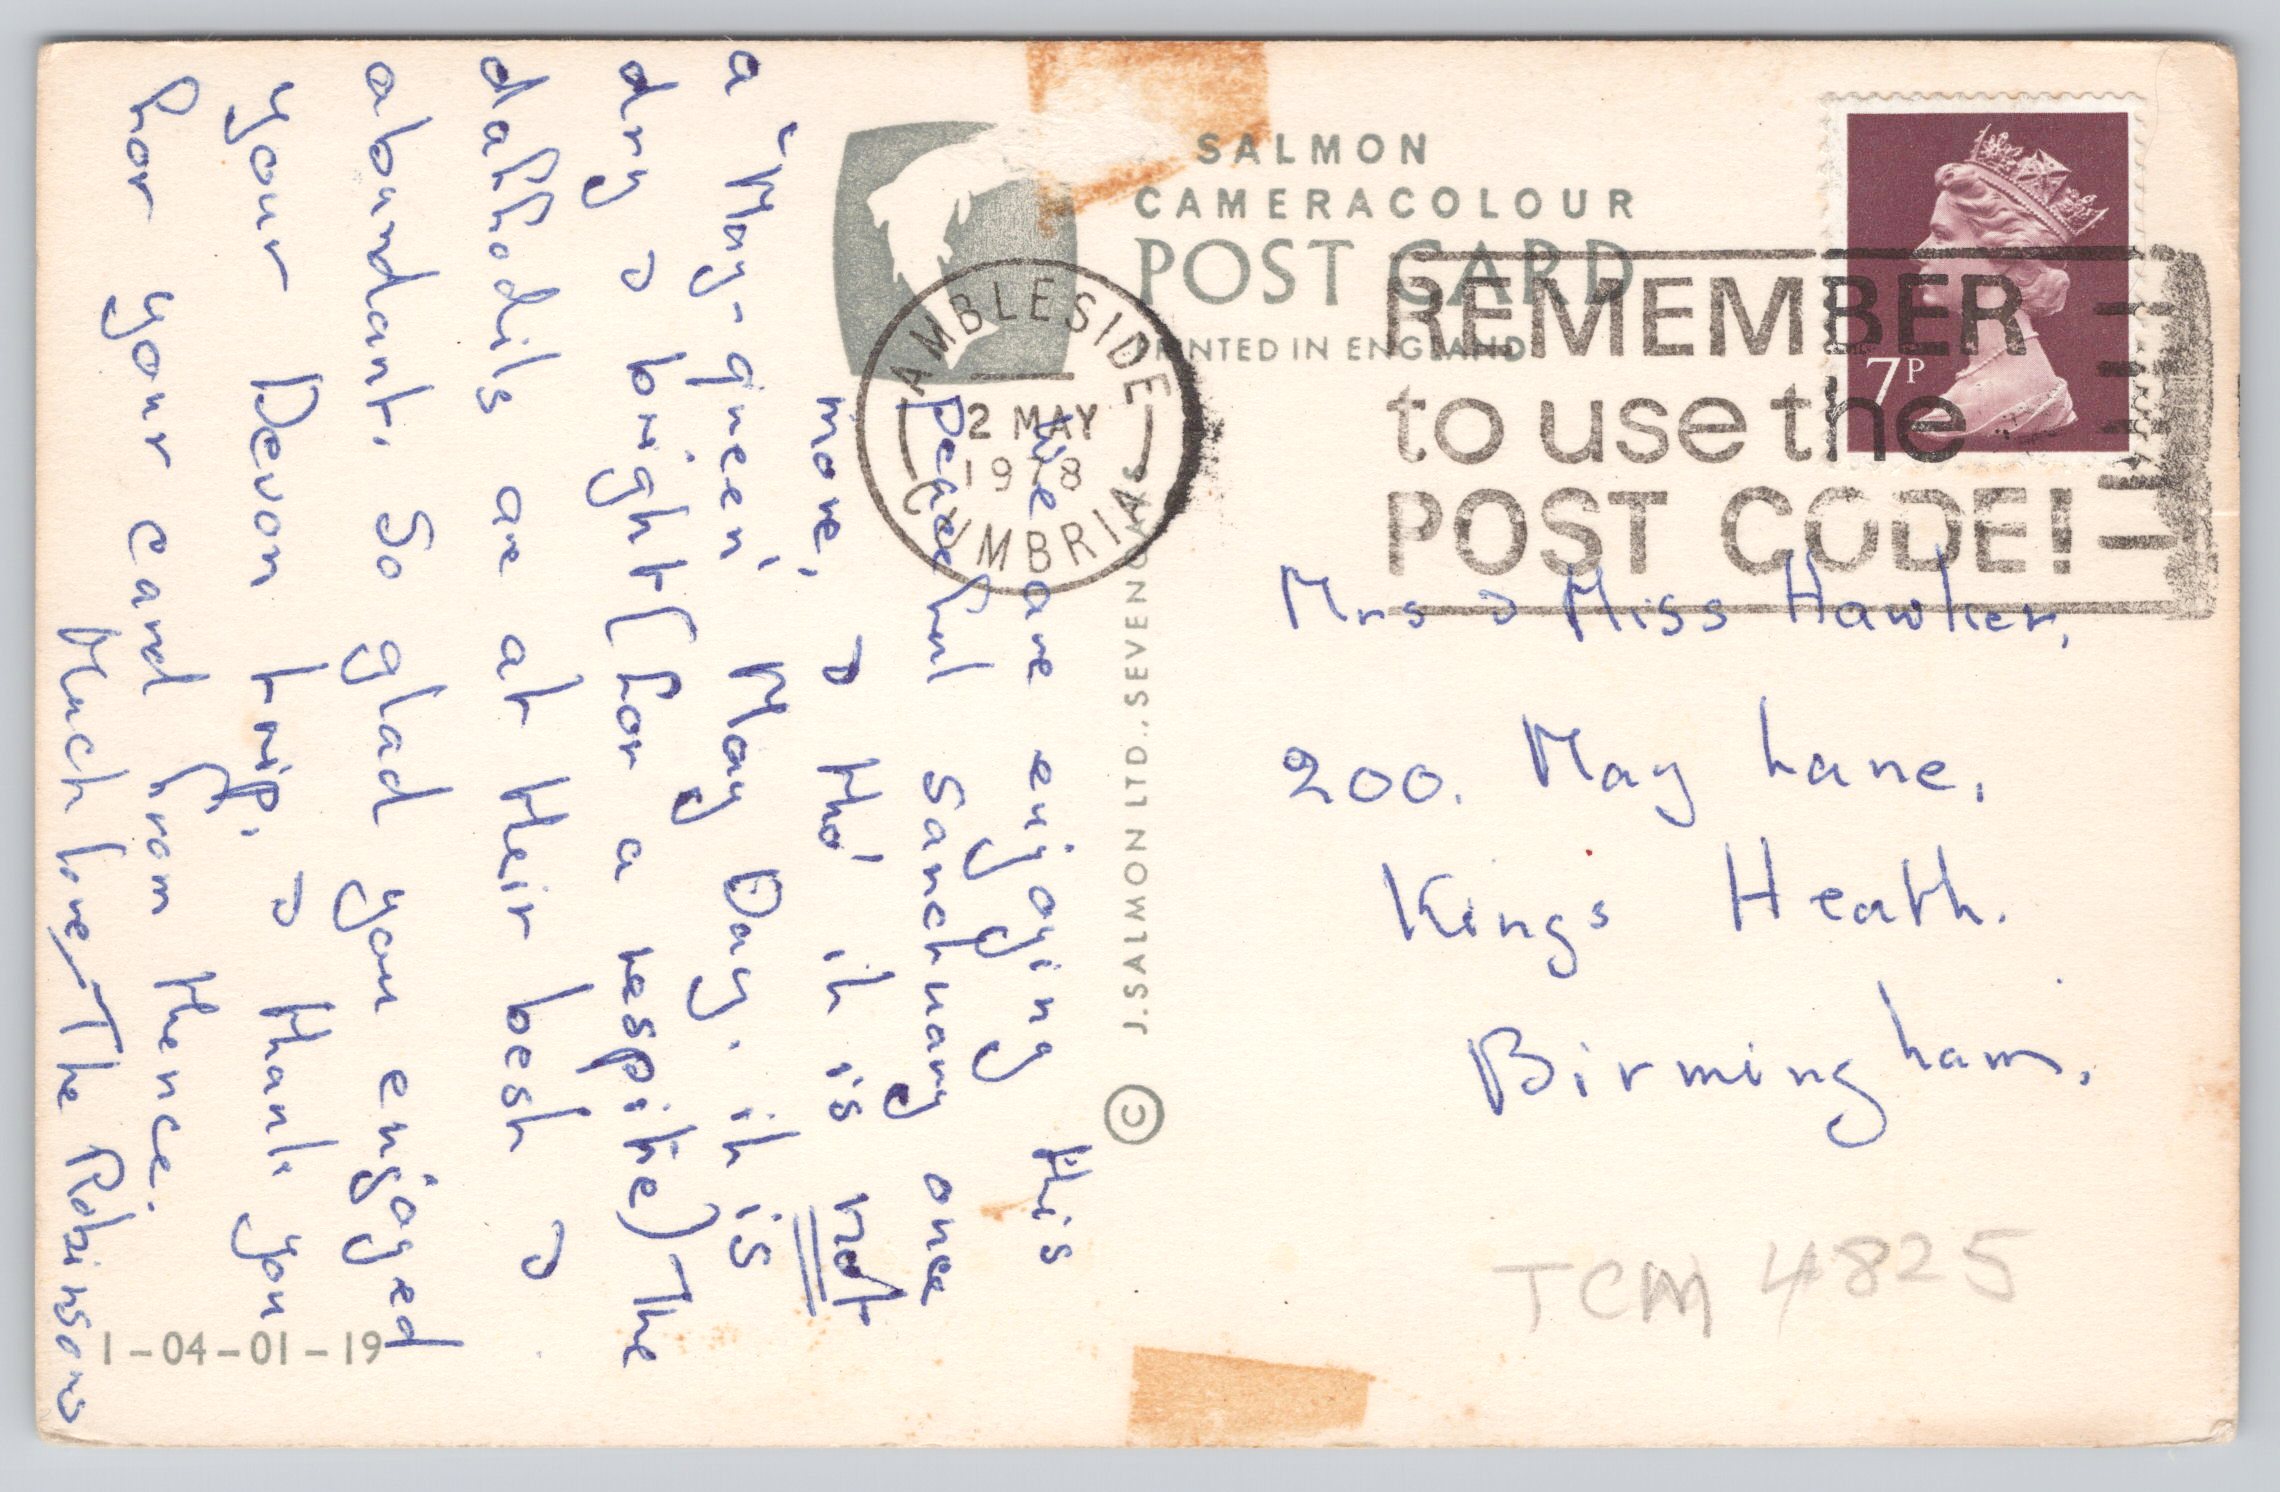 SALMON
CAMERACOLOUR
POST CARD
PRINTED IN ENGLAND
AMBLESIDE
2 MAY
1978
CUMBRIA
REMEMBER
to use the
POST CODE!
7P
We are enjoying this
peaceful sanctuary once
more, & tho' it is not
a 'May-queen' May Day, it is
dry & bright (for a respite) The
daffodils are at their best &
abundant. So glad you enjoyed
your Devon trip, & thank you
for your card from thence.
Much love, The Robinsons
J. SALMON LTD., SEVENOAKS
©
1-04-01-19
Mrs & Miss Hawker,
200. May Lane,
Kings Heath.
Birmingham.
TCM 4825